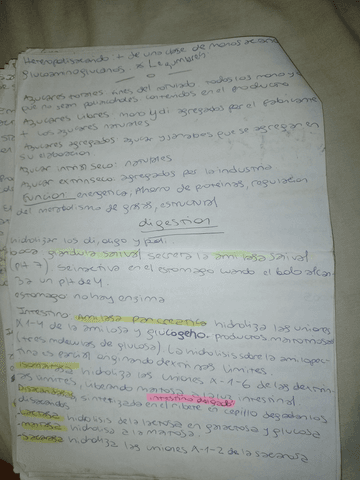 Heteropolisacarido: + de una clase de monosacarido
glucosaminoglucanos x Legumbres
Azucares totales: suma del
que no sean polisacaridos contenidos en el producto
Azucares libres: mono y di agregados por el fabricante
+ los azucares naturales
Azucares agregados: azucar y jarabes que se agregan en
su elaboracion
Azucar intrinseco: naturales
Azucar extrinseco: agregados por la industria
Funcion: energetica, Ahorro de proteinas, regulacion
del metabolismo de grasas, estructural
digestion
hidrolizar los di, oligo y poli
boca glandula salival secreta la amilasa salival
(pH 7). Se inactiva en el estomago cuando el bolo alcan-
za un pH de 4.
estomago: no hay enzima
Intestino: amilasa pancreatica hidroliza las uniones
1-4 de la amilosa y glucogeno. productos: maltotriosa
(tres moleculas de glucosa). La hidrolisis sobre la amilopec-
tina es parcial originando dextrinas limites.
hidroliza las uniones 1-6 de las dextrin-
as limites, liberando maltosa intestinal
intestino delgado
Disacaridasas: sintetizada en el ribete en cepillo degradan los
disacaridos
-Lactasa: hidrolisis de la lactosa en galactosa y glucosa
-maltasa: hidroliza a la maltosa.
-sacarasa: hidroliza las uniones 1-2 de la sacarosa